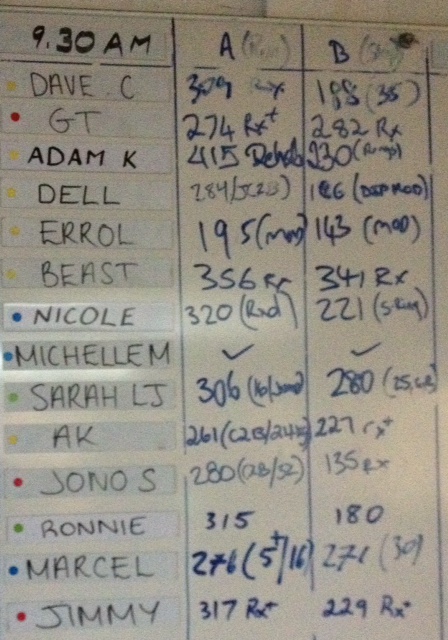 9.30 AM A B
DAVE C 309 Rx 188 (35)
GT 274 Rx+ 282 Rx
ADAM K 415 Rehab 230
DELL 284/ 186
ERROL 195 (mod) 143 (mod)
BEAST 356 Rx 341 Rx
NICOLE 320 (Rxd) 221
MICHELLE M ✓ ✓
SARAH LJ 306 280
AK 261 227 rx+
JONO S 280 135 Rx
RONNIE 315 180
MARCEL 276 (5+/16) 271 (30)
JIMMY 317 Rx+ 229 Rx+